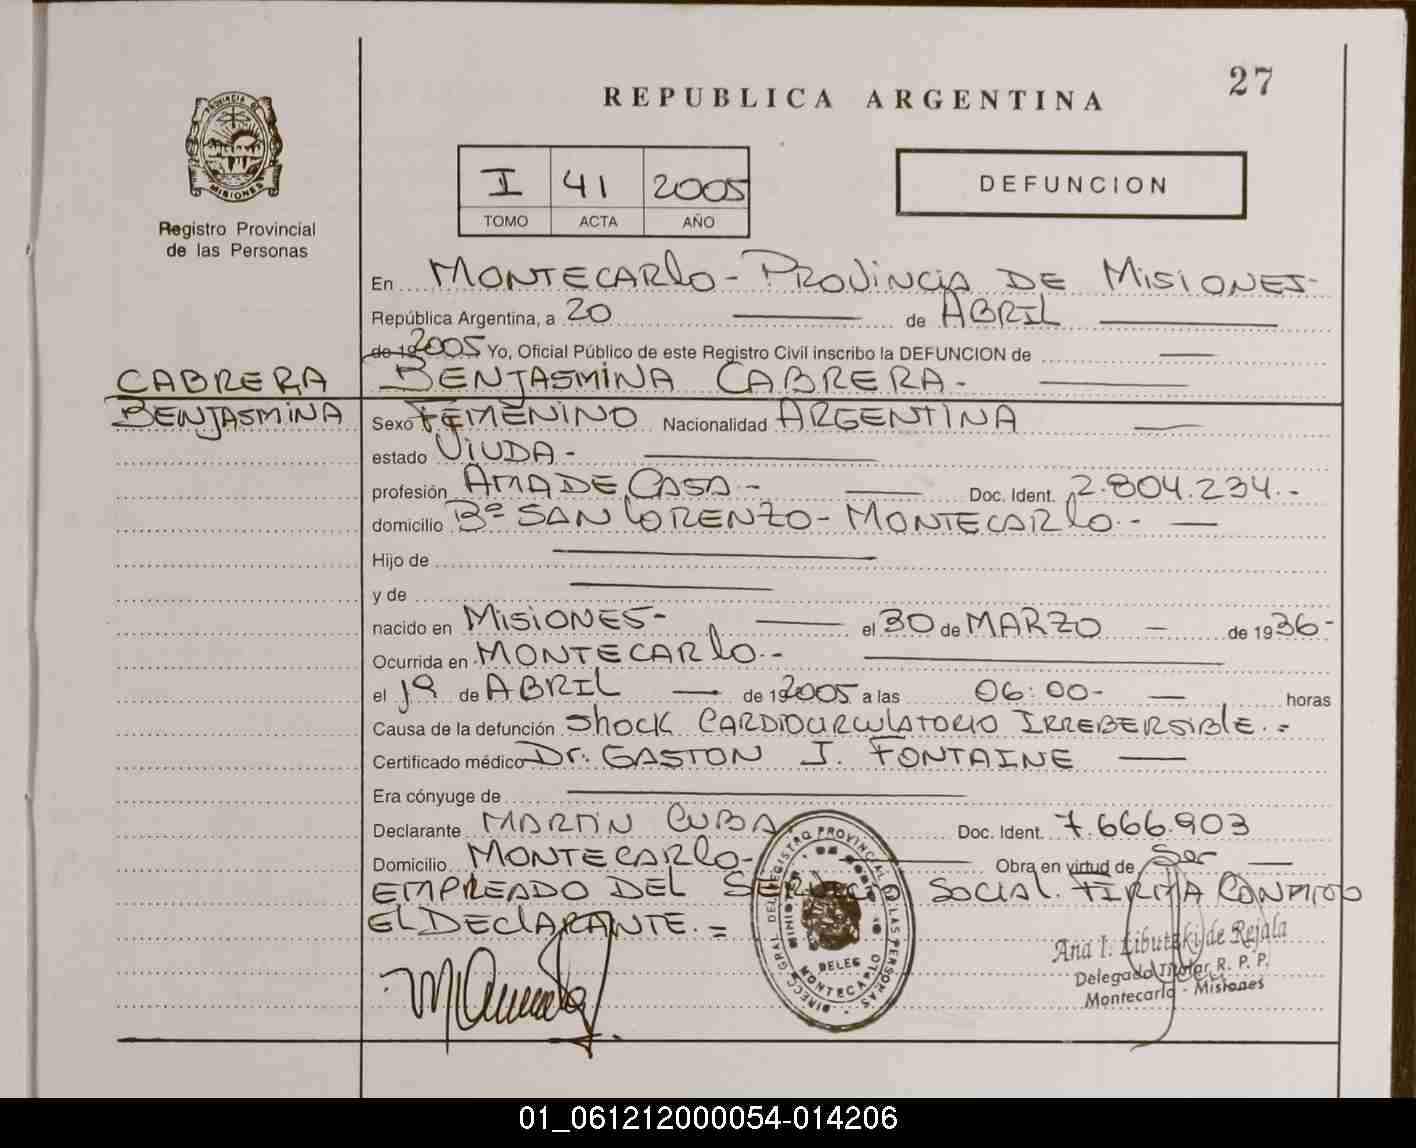 27
REPUBLICA ARGENTINA
PROVINCIA DE
MISIONES
Registro Provincial
de las Personas
I 41 2005
TOMO ACTA AÑO
DEFUNCION
En MONTECARlO - PROViNCiA DE MiSIONES-
República Argentina, a 20 de ABRIL
de 19 2005 Yo, Oficial Público de este Registro Civil inscribo la DEFUNCION de
CABRERA BENJASMiNA CABRERA -
BENJASMiNA Sexo FEMENINO Nacionalidad ARGENTINA
estado ViUDA -
profesión AMA DE CASA - Doc. Ident. 2.804.234.-
domicilio Bº SAN LORENZO - MONTECARlO.-
Hijo de
y de
nacido en MiSiONES- el 30 de MARZO de 1936-
Ocurrida en MONTECARlO.-
el 19 de ABRIL de 19 2005 a las 06:00- horas
Causa de la defunción ShOCK CARDIOCIRCULATORIO IRREBERSiBlE.=
Certificado médico Dr. GASTON J. FONTAINE
Era cónyuge de
Declarante MARTIN CUBA Doc. Ident. 7.666.903
Domicilio MONTECARlO- Obra en virtud de Ser
EMPREADO DEL SERVICIO SOCIAL. FIRMA CONMIGO
El DEClARANTE.=
DIRECC. GRAL. DEL REGISTRO PROVINCIAL DE LAS PERSONAS
DELEG
MONTECARLO
Ana I. Libutzki de Rejala
Delegado Titular R. P. P.
Montecarlo - Misiones
01_061212000054-014206